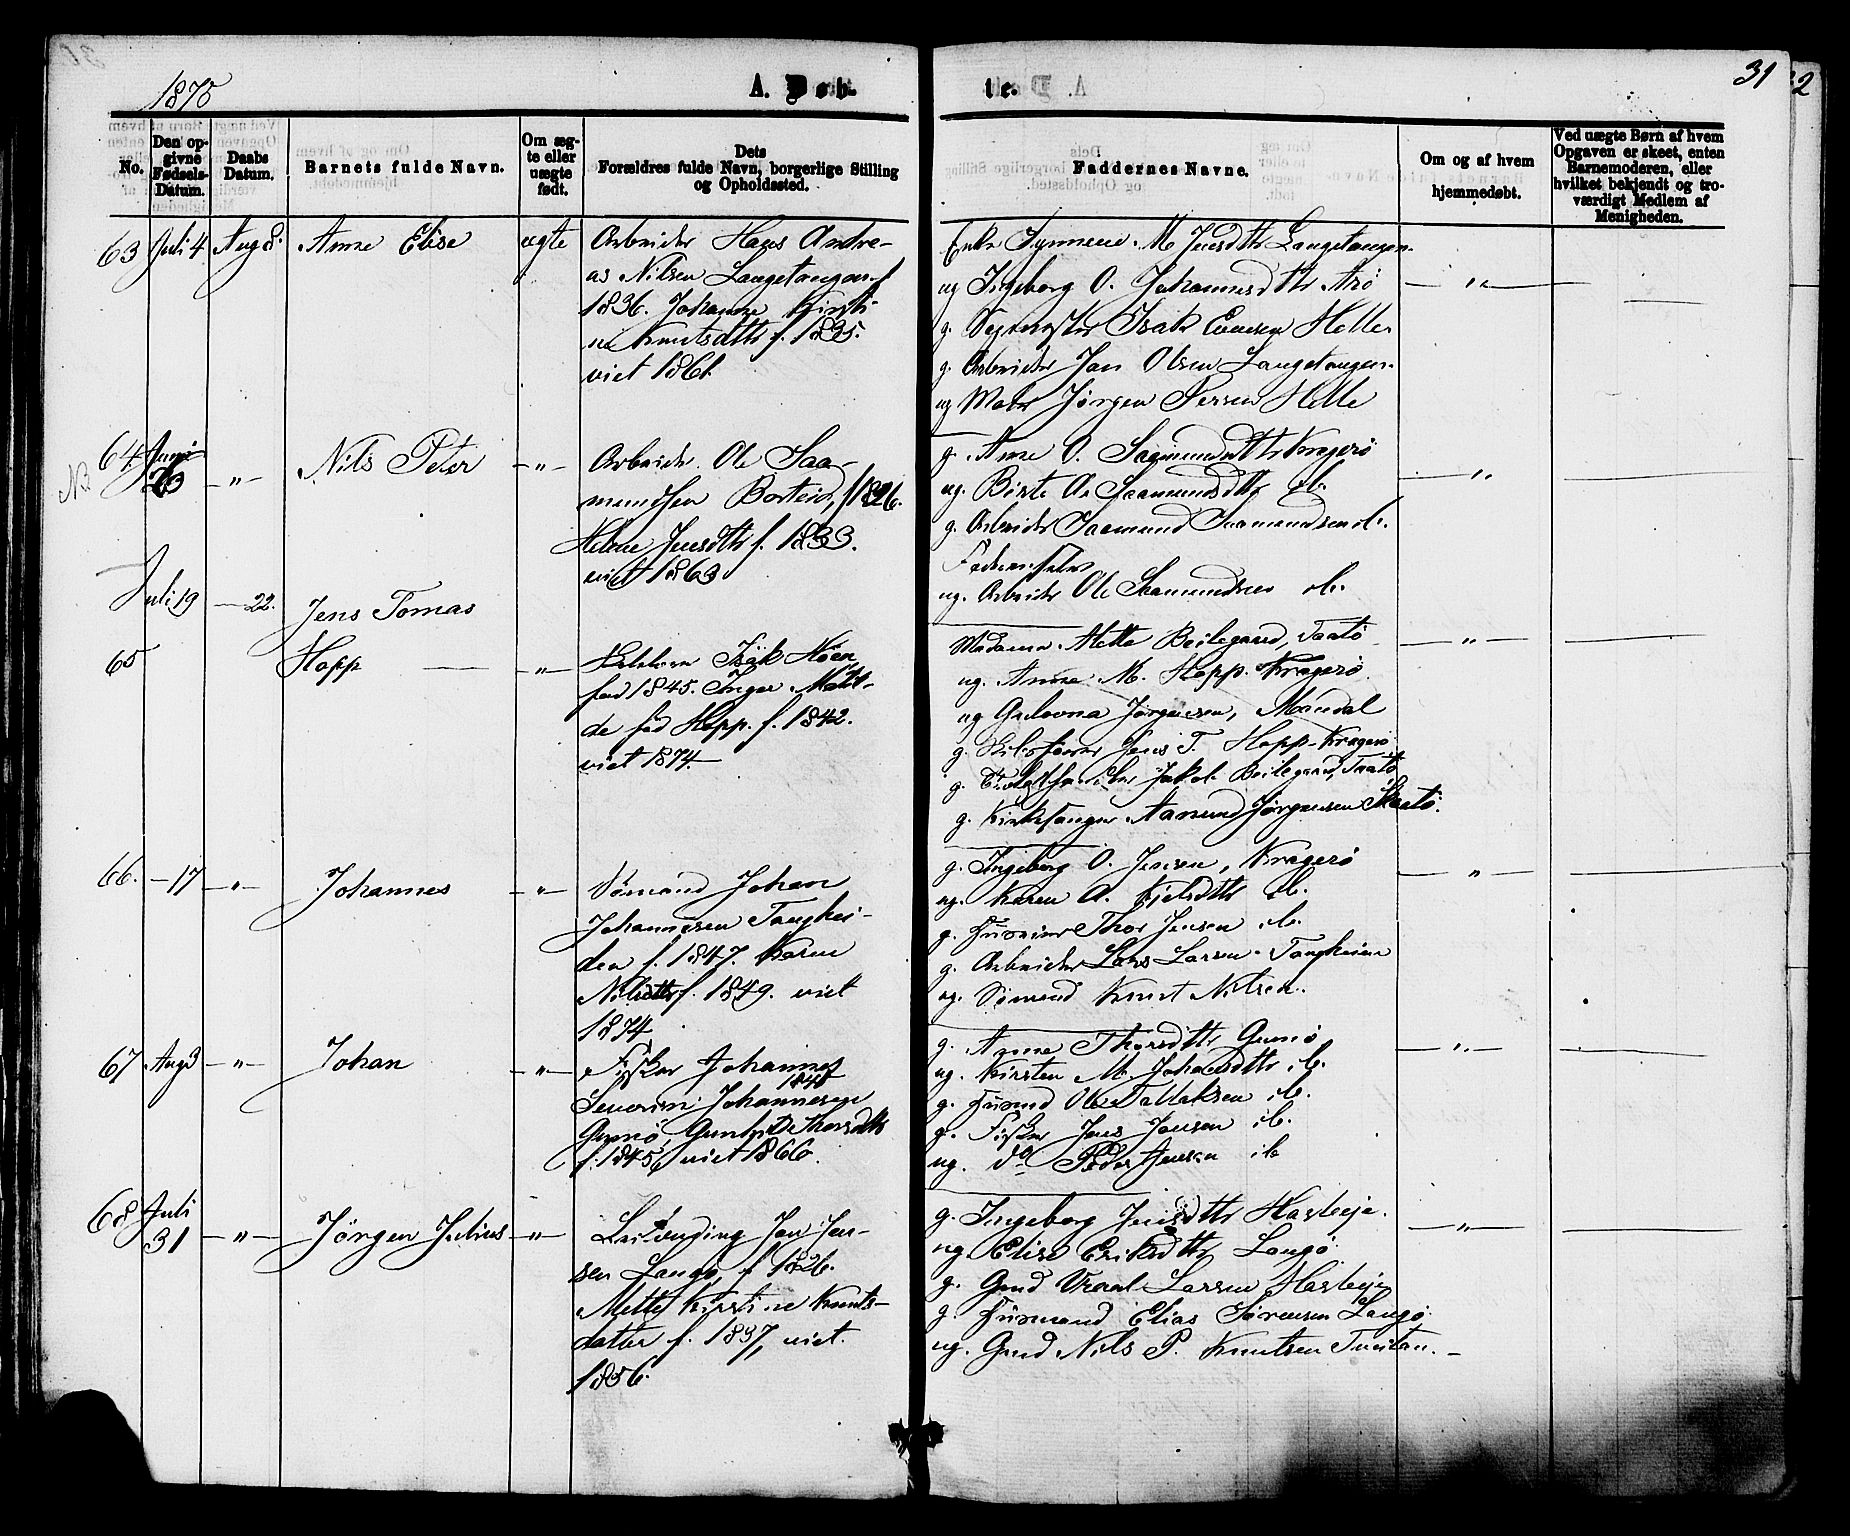 1875
A. Døb
te.
31
2
No.
Den opgivne Fødsels-Datum.
Daabs Datum.
Barnets fulde Navn.
Om ægte eller uægte født.
Dets Forældres fulde Navn, borgerlige Stilling og Opholdssted.
Faddernes Navne.
Om og af hvem hjemmedøbt.
Ved uægte Børn af hvem Opgaven er skeet, enten Barnemoderen, eller hvilket bekjendt og troværdigt Medlem af Menigheden.
63 Juli 4 Aug 8. Anne Elise ægte
Arbeider Hans Andre-
as Nilsen Langetangen f
1836. Johanne Kirsti-
ne Knutsdttr f. 1835.
viet 1861.
Enke Synneve M Jensdttr Langetangen.
ug Ingeborg O. Johannesdttr Arø — " —
g. Isak Evensen Helle
g. Arbeider Jan Olsen Langetangen.
ug Jørgen Helle
64. Juni 26 — " — Nils Peter — " —
Arbeider Ole Saa-
mundsen Borteid, f 1826.
Helene Jensdttr f. 1833.
viet 1863
g. Anne O. Saamundsdttr Kragerø
ug. Birte As Saamundsdttr ib. — " —
g. Arbeider Saamund Saamundsen ib.
ug. Arbeider Ole Saamundsen ib.
65 Juli 19 — 22. Jens Tomas
Hopp — — " —
Isak
fød 1845. Inger Matil-
de fød Hopp. f. 1842.
viet 1874. —
Madame Mette Beilegaard, Taatø — " —
ug. Anne M. Hopp. Kragerø
ug Jørgensen, Mandal
g. Jens T. Hopp - Kragerø
g. Jakob Beilegaard, Taatø
g. Kirkesanger Aanund Jørgensen Skaatø.
66. — 17 — " — Johannes — " —
Sømand Johan
Johannesen Tanghei-
den f. 1847. Karen
Nilsdttr f. 1849. viet
1874
g. Ingeborg O. Jensen, Kragerø
ug. Karen A. Kjelsdttr ib. — " —
g. Thor Jensen ib.
g. Arbeider Lars Larsen - Tangheien
ug. Sømand Knut Nilsen.
67 Aug 3 — " — Johan — " —
Fisker Johannes
Severin Johannesen
Gumø, Thorsdttr
f. 1845, viet 1866.
g. Anne Thorsdttr Gumø — " —
ug. Kirsten M. Johansdttr ib.
g. Husmand Ole Tallaksen ib.
g. Fisker Jens Jensen ib.
ug. do Peder Jensen ib
68 Juli
31 — " — Jørgen Julius — " —
Jan Jen-
sen Langø, f 1826.
Mette Kirstine Knuts-
datter f. 1837, viet.
1856.
g. Ingeborg Jensdttr Hasleje. — " —
ug. Elise Eriksdttr Langø
g. Grd Larsen Hasleje
g. Husmand Elias Sørensen Langø
ug. Grd Nils P. Knutsen Tveitan. —